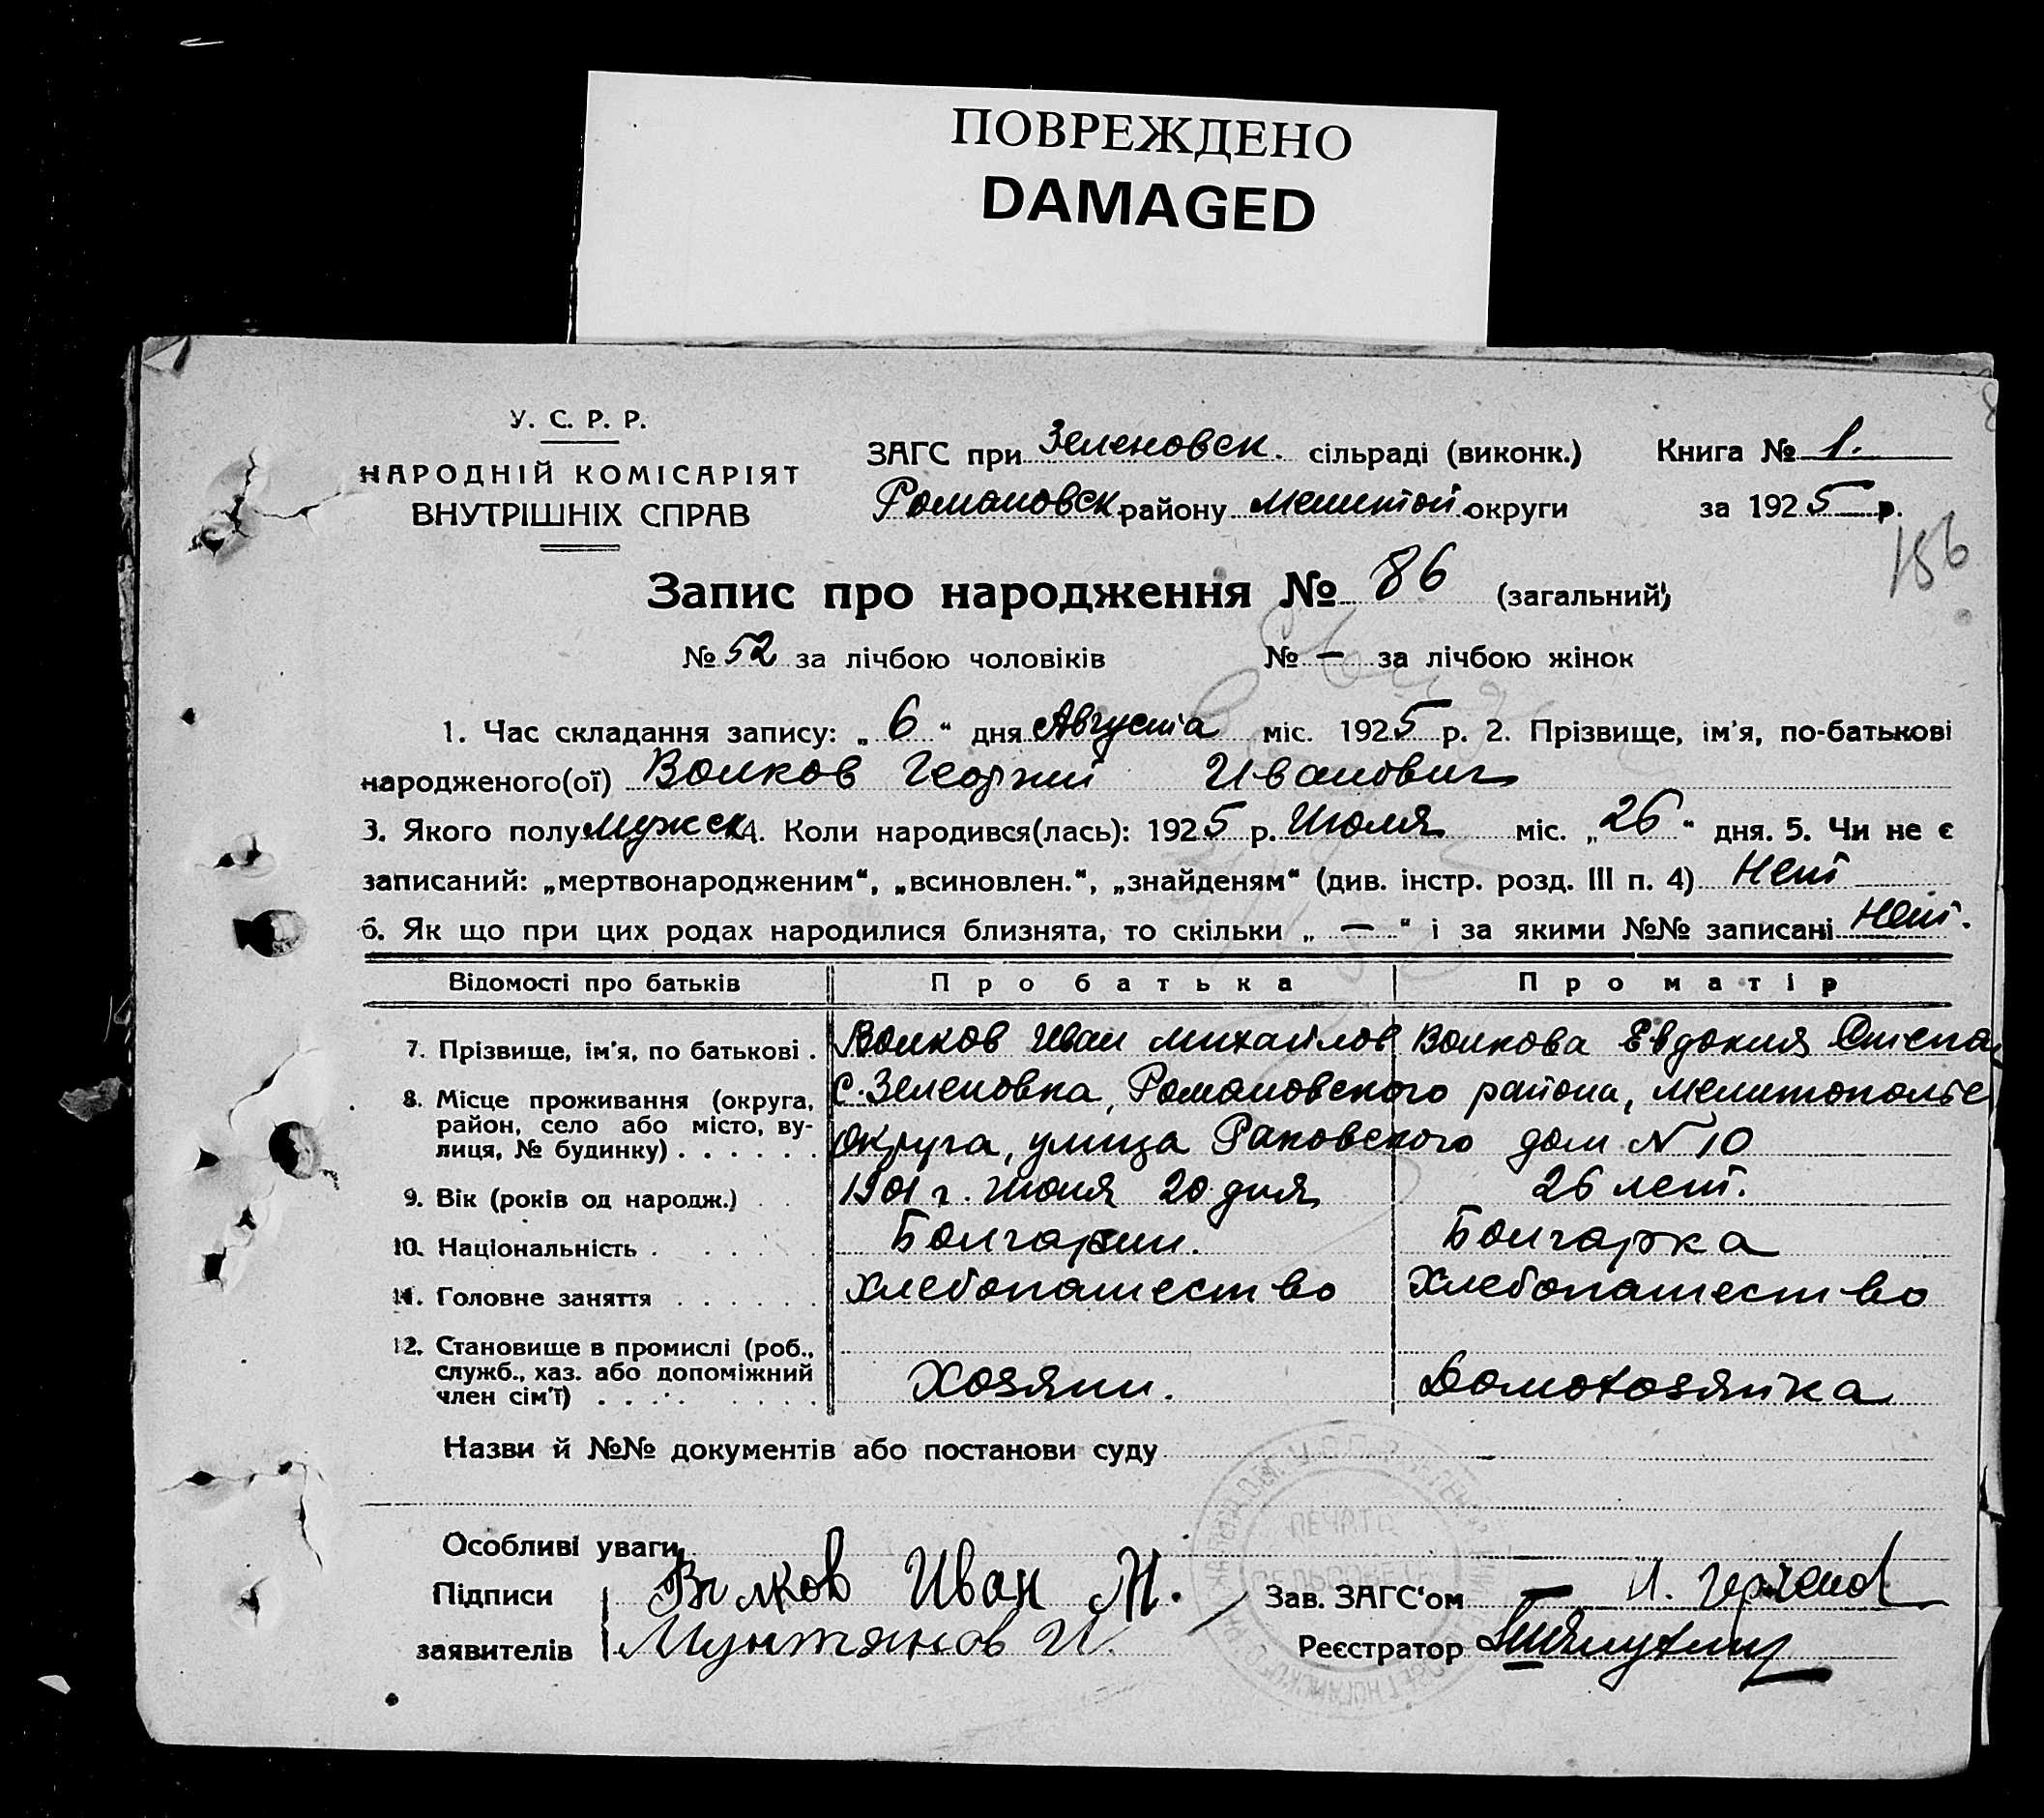 ПОВРЕЖДЕНО
DAMAGED
У. С. Р. Р.
НАРОДНІЙ КОМІСАРІЯТ
ВНУТРІШНІХ СПРАВ
ЗАГС при Зеленовск. сільраді (виконк.) Книга № 1.
Романовск району Мелитоп. округи за 1925 р.
186
Запис про народження № 86 (загальний)
№ 52 за лічбою чоловіків № — за лічбою жінок
1. Час складання запису: „ 6 “ дня Августа міс. 1925 р. 2. Прізвище, ім'я, по-батькові
народженого(ої) Волков Георгий Иванович
3. Якого полу Мужск 4. Коли народився(лась): 1925 р. Июля міс. „ 26 “ дня. 5. Чи не є
записаний: „мертвонародженим“, „всиновлен.“, „знайденям“ (див. інстр. розд. III п. 4) Нет
6. Як що при цих родах народилися близнята, то скільки „ — “ і за якими №№ записані Нет.
Відомості про батьків Про батька Про матір
7. Прізвище, ім'я, по батькові . Волков Иван Михайлов Волкова Евдокия Степан
8. Місце проживання (округа, район, село або місто, вулиця, № будинку) . . . . . . с. Зеленовка, Романовского района, Мелитопольс
округа, улица Раковского дом № 10
9. Вік (років од народж.) . . 1901 г. Июля 20 дня 26 лет.
10. Національність . . . . . Болгарин. Болгарка
11. Головне заняття . . . . . . Хлебопашество Хлебопашество
12. Становище в промислі (роб., служб., хаз. або допоміжний член сім'ї) . . . . . . . . Хозяин. Домохозяйка
Назви й №№ документів або постанови суду —
Особливі уваги
Підписи Волков Иван М. Зав. ЗАГС'ом
заявителів Мунтянов И. Реєстратор
ПЕЧАТЬ
СЕЛЬСОВЕТА